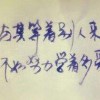 与其等着别人来
不如努力学着多爱